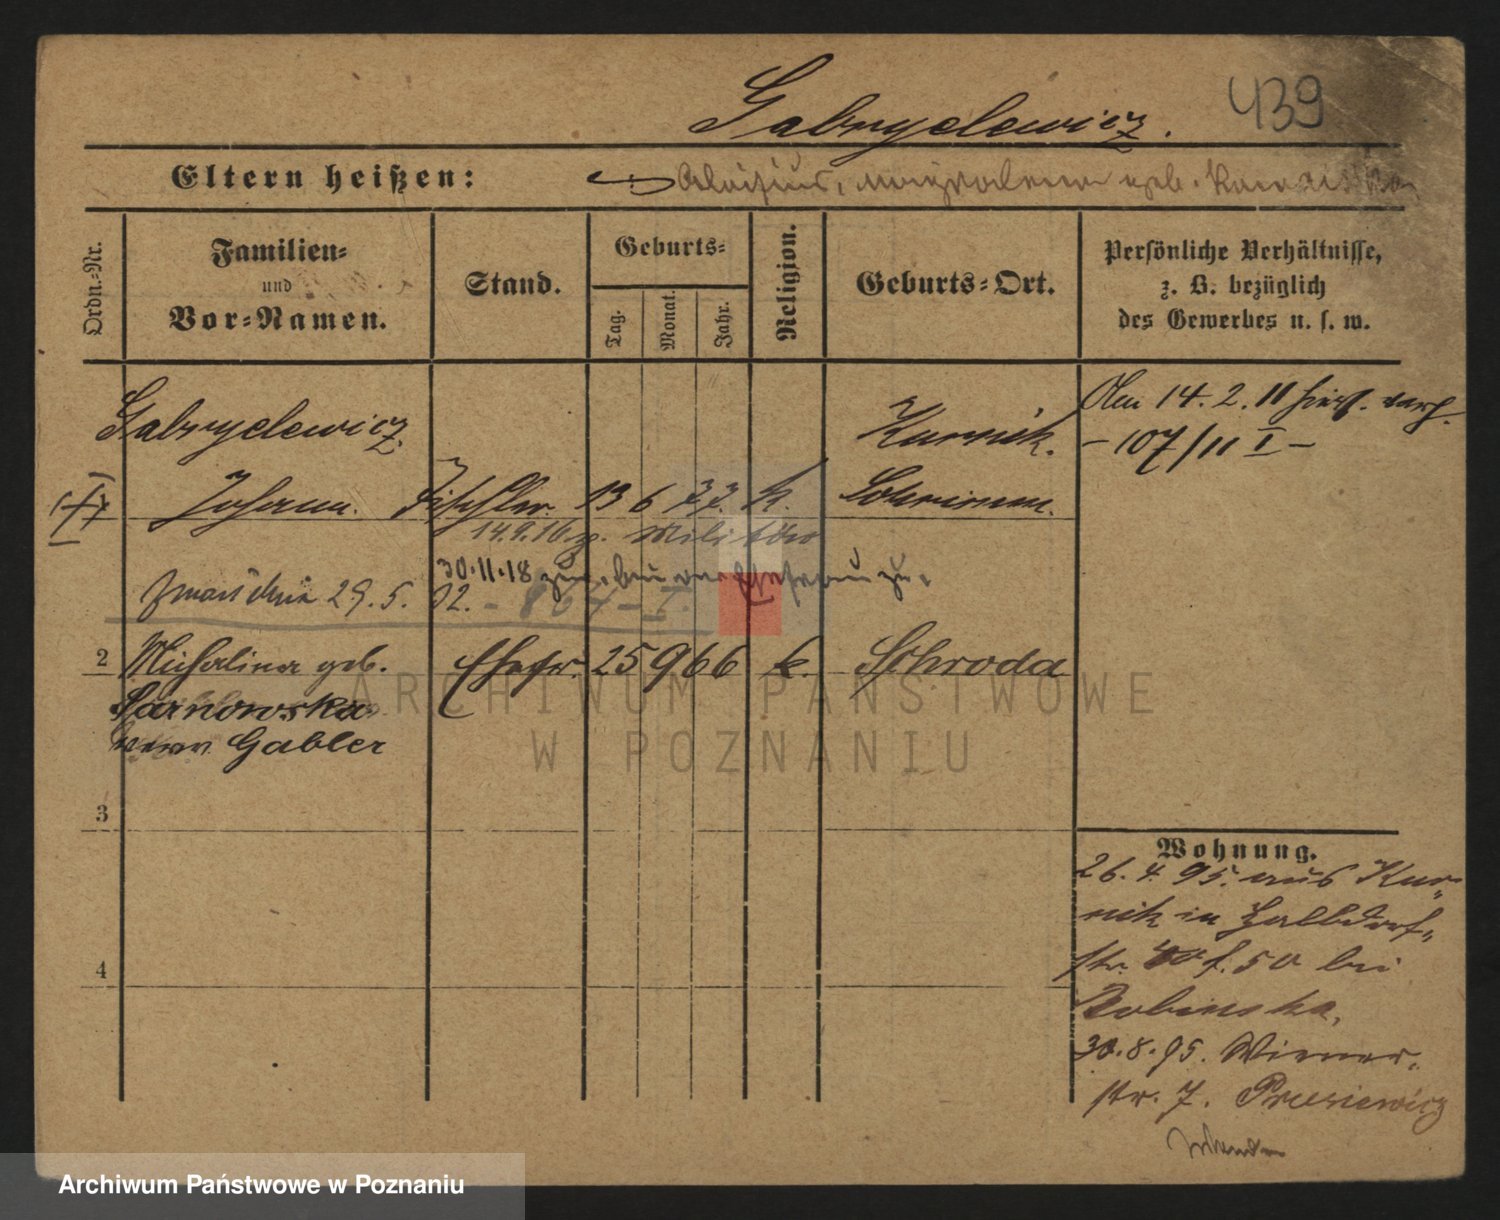 439
Gabryelewicz.
Eltern heißen:
Aloisius, Magdalena geb.
Ordn.-Nr.
Familien-
und
Vor-Namen.
Stand.
Geburts-
Tag.
Monat.
Jahr.
Religion.
Geburts-Ort.
Persönliche Verhältnisse,
z. B. bezüglich
des Gewerbes u. s. w.
Gabryelewicz
Kurnik.
Am 14. 2. 11 hier
- 107/11 I -
Johann. Tischler. 13 6 77. k. Schrimm.
14.9.16 z. Militär
30.11.18
29. 5. 02. - 864 - I.
2 Michalina geb. Ehefr. 25 9 66 k. Schroda
Sarnowska
verw Gabler
ARCHIWUM PAŃSTWOWE
W POZNANIU
3
Wohnung.
26. 4. 95. aus Kur-
nik in Halbdorf-
str. f. 50 bei
4
30. 8. 95. Wiener-
str. 7.
Archiwum Państwowe w Poznaniu